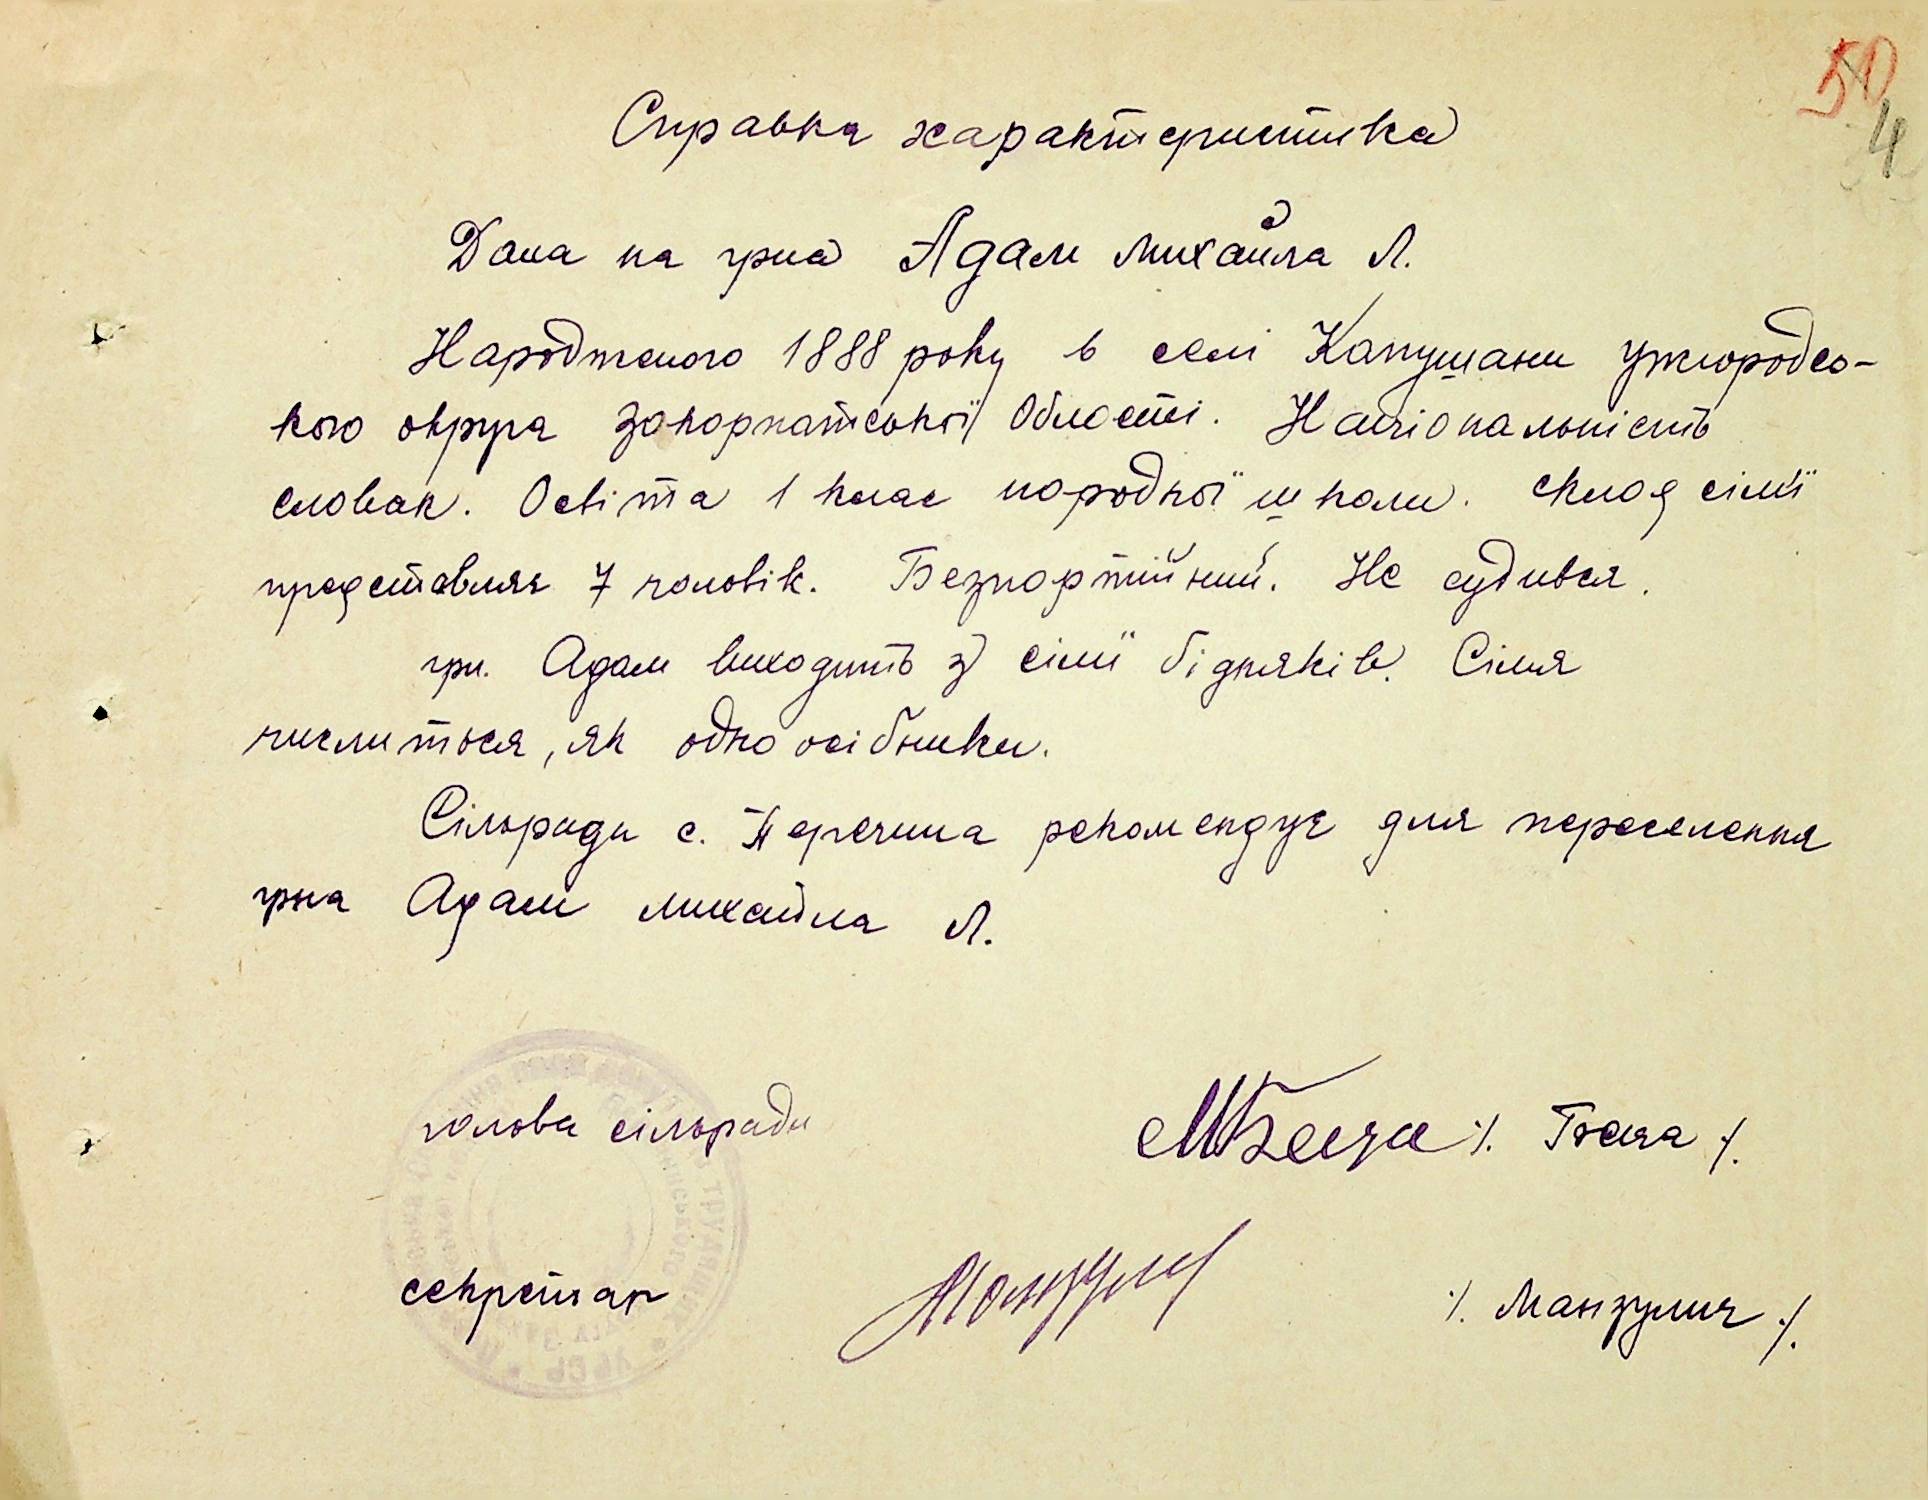 50
4
Справка характеристика
Дана на грна Адам Михайла Л.
Народженого 1888 року в селі Капушани Ужгородсь-
кого округа Закарпатської Області. Національність
словак. Освіта 1 клас народної школи. Склад сімї
представляє 7 чоловік. Безпартійний. Не судився.
грн. Адам виходить з сімї бідняків. Сімя
числиться, як одноосібники.
Сільради с. Перечина рекомендує для переселення
грна Адам Михайла Л.
голова сільради /. Беца /.
секретар /. Манзулич /.